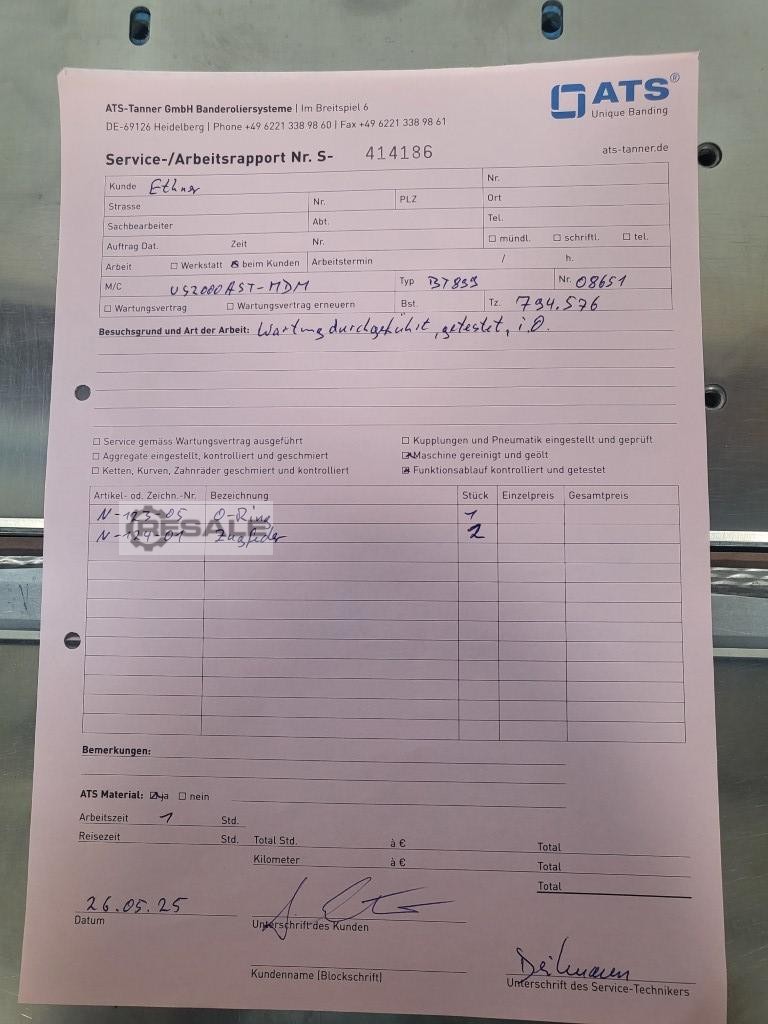 ATS-Tanner GmbH Banderoliersysteme | Im Breitspiel 6
DE-69126 Heidelberg | Phone +49 6221 338 98 60 | Fax +49 6221 338 98 61
ATS®
Unique Banding
Service-/Arbeitsrapport Nr. S- 414186
ats-tanner.de
Kunde Ethner Nr.
Strasse Nr. PLZ Ort
Sachbearbeiter Abt. Tel.
Auftrag Dat. Zeit Nr. ☐ mündl. ☐ schriftl. ☐ tel.
Arbeit ☐ Werkstatt ☒ beim Kunden Arbeitstermin / h.
M/C US2000AST-MDM Typ BT899 Nr. 08651
☐ Wartungsvertrag ☐ Wartungsvertrag erneuern Bst. Tz. 794.576
Besuchsgrund und Art der Arbeit: Wartung durchgeführt, getestet, i.O.
☐ Service gemäss Wartungsvertrag ausgeführt ☐ Kupplungen und Pneumatik eingestellt und geprüft
☐ Aggregate eingestellt, kontrolliert und geschmiert ☒ Maschine gereinigt und geölt
☐ Ketten, Kurven, Zahnräder geschmiert und kontrolliert ☒ Funktionsablauf kontrolliert und getestet
Artikel- od. Zeichn.-Nr. Bezeichnung Stück Einzelpreis Gesamtpreis
N-123-05 O-Ring 1
N-124-01 Zugfeder 2
RESALE
Bemerkungen:
ATS Material: ☒ ja ☐ nein
Arbeitszeit 1 Std.
Reisezeit Std. Total Std. à € Total
Kilometer à € Total
Total
26.05.25
Datum Unterschrift des Kunden
Kundenname (Blockschrift) Unterschrift des Service-Technikers